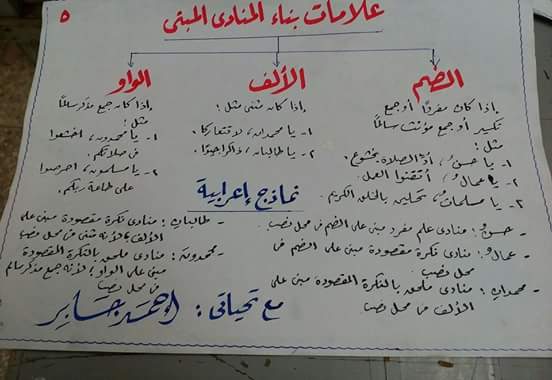 ٥
علامات بناء المنادى المبنى
الضم
إذا كان مفردًا أو جمع
تكسير أو جمع مؤنث سالمًا
مثل:
١- يا حسنُ، أدِّ الصلاة بخشوع.
٢- يا عمالُ، أتقنوا العمل.
٣- يا مسلماتُ، تحلين بالخلق الكريم.
الألف
إذا كان مثنى مثل:
١- يا محمدان، لا تتعاركا.
٢- يا طالبان، ذاكرا جيدًا.
الواو
إذا كان جمع مذكر سالمًا
مثل:
١- يا محمدون، اخشعوا
فى صلاتكم.
٢- يا مسلمون، احرصوا
على طاعة ربكم.
نماذج إعرابية
- حسنُ: منادى علم مفرد مبنى على الضم فى محل نصب
- عمالُ: منادى نكرة مقصودة مبنى على الضم فى
محل نصب
- محمدان: منادى ملحق بالنكرة المقصودة مبنى على
الألف فى محل نصب
- طالبان: منادى نكرة مقصودة مبنى على
الألف؛ لأنه مثنى فى محل نصب
- محمدون: منادى ملحق بالنكرة المقصودة
مبنى على الواو؛ لأنه جمع مذكر سالم
فى محل نصب
مع تحياتى: أحمد جابر